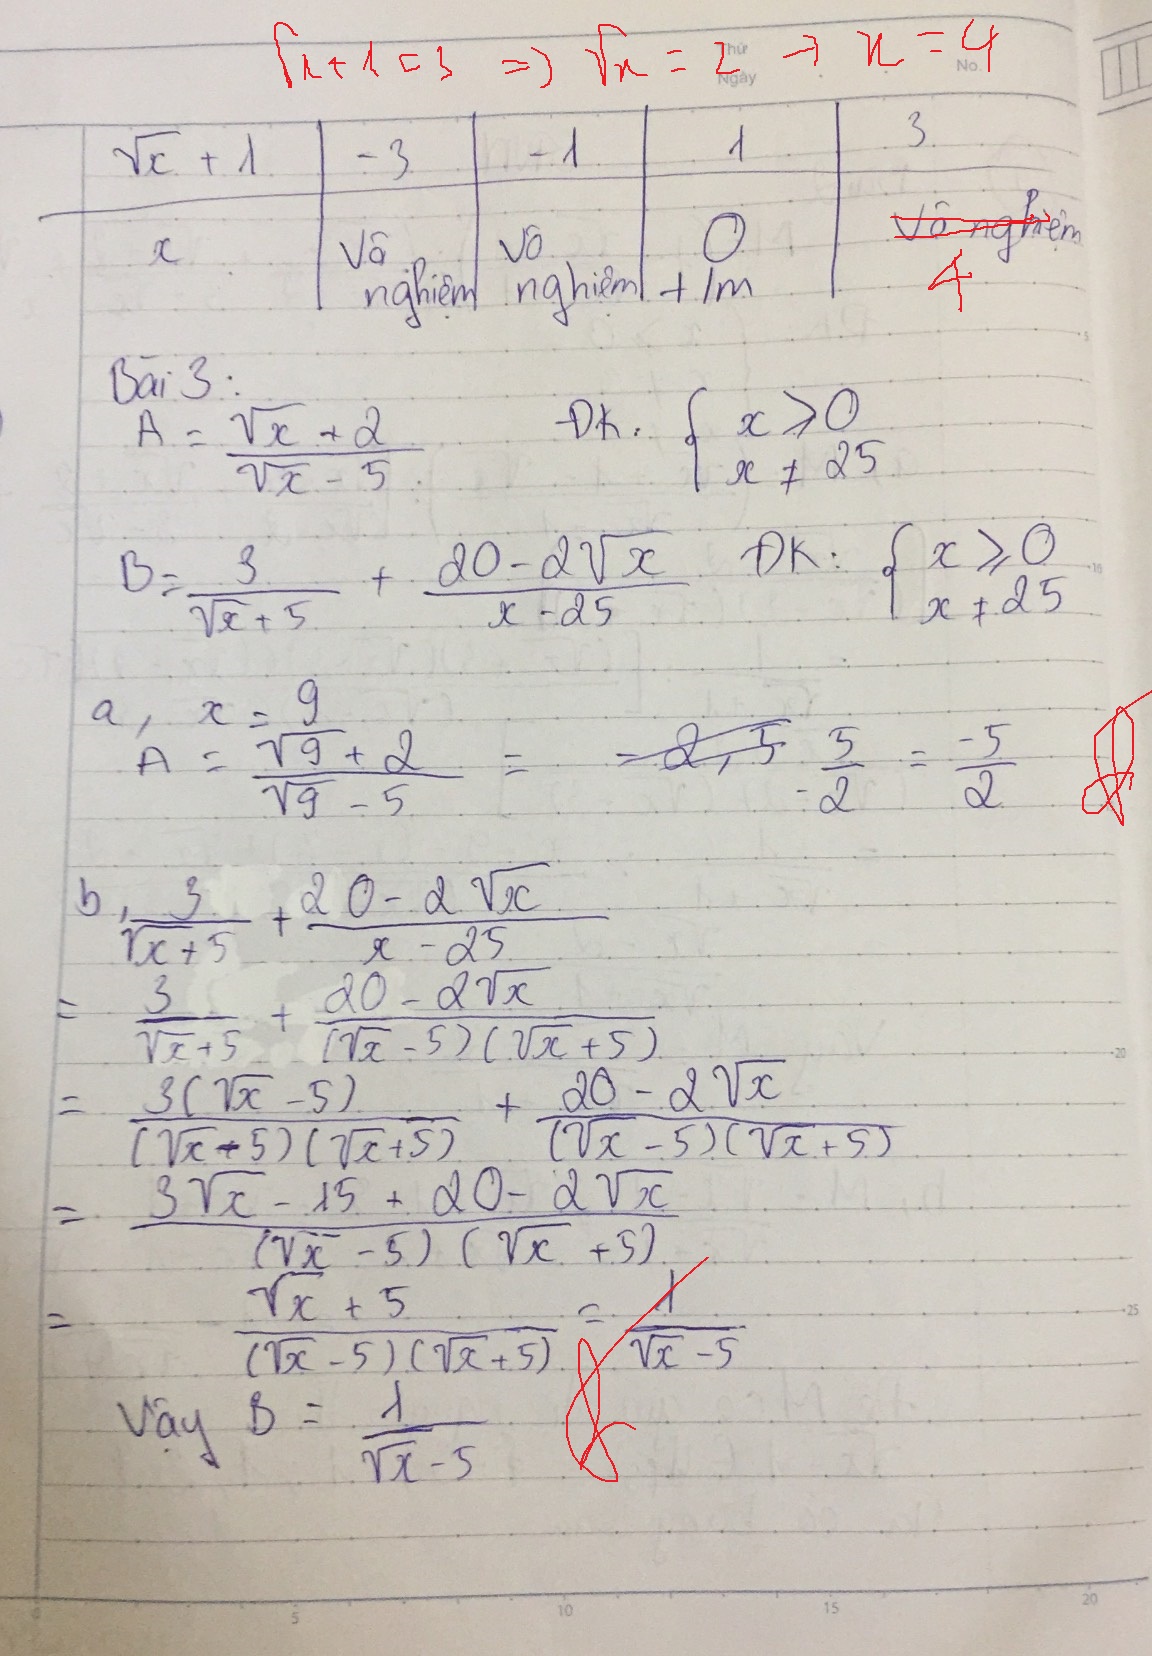 √x + 1 = 3 => √x = 2 → x = 4
Thứ
Ngày
No.
√x + 1 | -3 | -1 | 1 | 3
x | Vô nghiệm | Vô nghiệm | 0 +/m | Vô nghiệm
4
Bài 3:
A = (√x + 2)/(√x - 5) ĐK: { x ⩾ 0 x ≠ 25
B = 3/(√x + 5) + (20 - 2√x)/(x - 25) ĐK: { x ⩾ 0 x ≠ 25
a, x = 9
A = (√9 + 2)/(√9 - 5) = -2,5 5/-2 = -5/2
b, 3/(√x + 5) + (20 - 2√x)/(x - 25)
= 3/(√x + 5) + (20 - 2√x)/((√x - 5)(√x + 5))
= 3(√x - 5)/((√x - 5)(√x + 5)) + (20 - 2√x)/((√x - 5)(√x + 5))
= (3√x - 15 + 20 - 2√x)/((√x - 5)(√x + 5))
= (√x + 5)/((√x - 5)(√x + 5)) = 1/(√x - 5)
Vậy B = 1/(√x - 5)
5
10
20
25
0 5 10 15 20